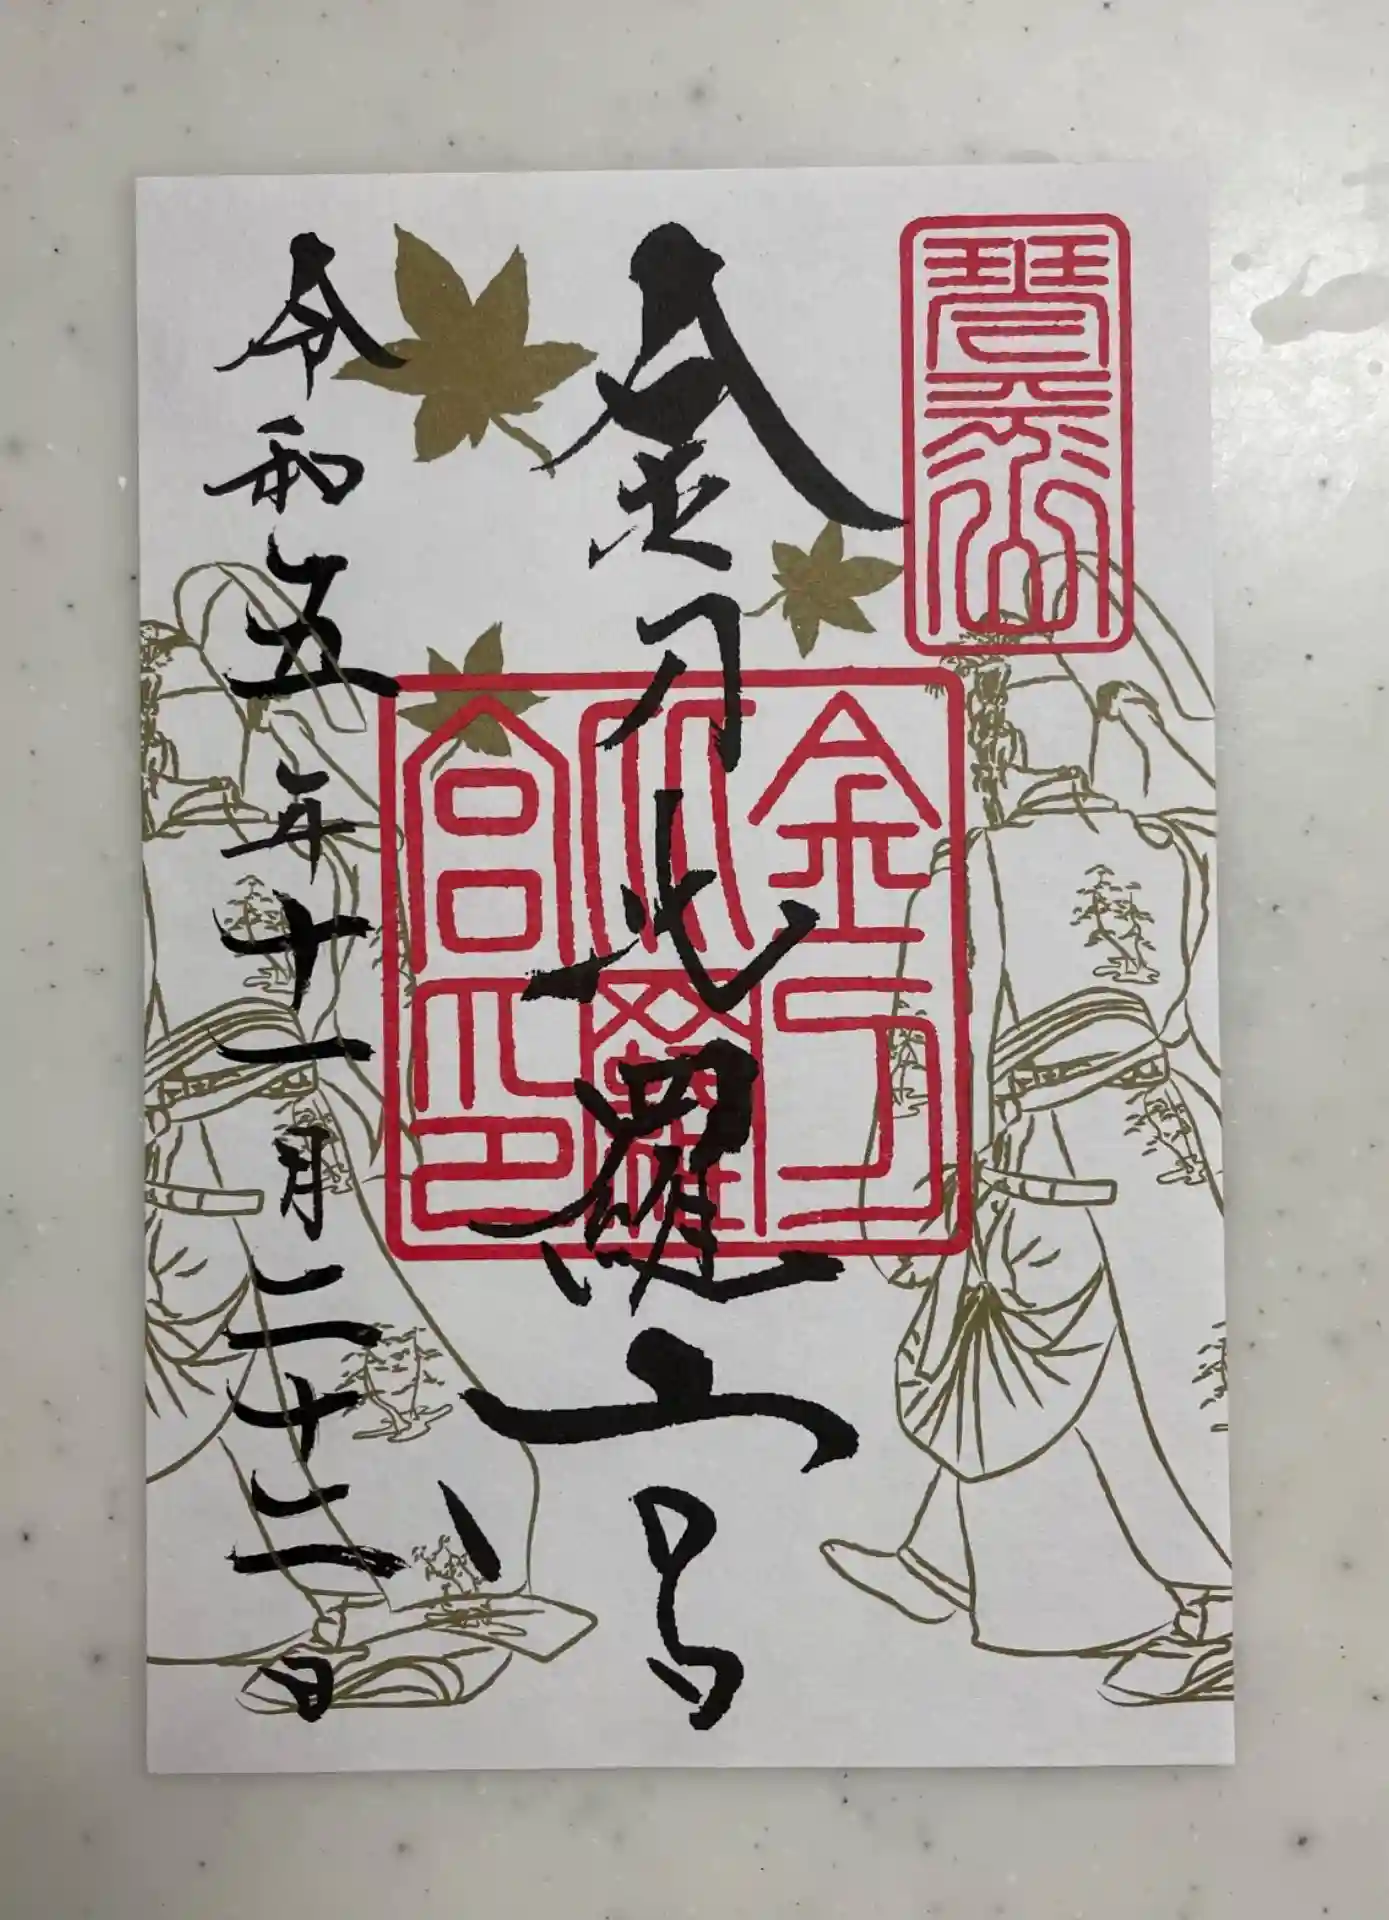 琴平山
金刀比羅宮
金刀
比羅
宮印
令和五年十一月二十二日